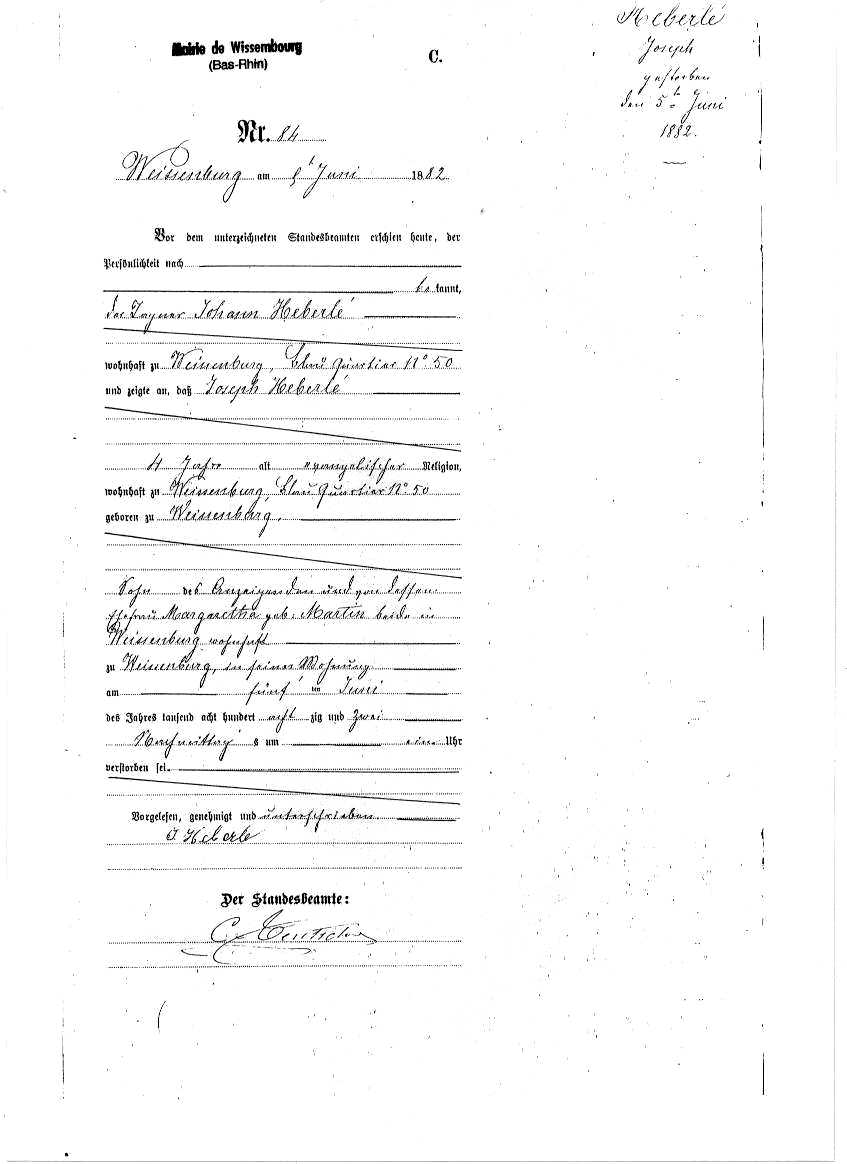 Mairie de Wissembourg
(Bas-Rhin)
C.
Heberlé
Joseph
gestorben
den 5t Juni
1882.
Nr. 84
Weissenburg am 5t Juni 1882
Vor dem unterzeichneten Standesbeamten erschien heute, der
Persönlichkeit nach
be kannt,
der Tagner Johann Heberlé
wohnhaft zu Weissenburg, Blau Quartier No 50
und zeigte an, daß Joseph Heberlé
4 Jahre alt evangelischer Religion,
wohnhaft zu Weissenburg, Blau Quartier No 50
geboren zu Weissenburg,
Sohn des Anzeigenden und von dessen
Ehefrau Margaretha geb. Martin beide in
Weissenburg wohnhaft
zu Weissenburg, in seiner Wohnung
am fünften Juni
des Jahres tausend acht hundert acht zig und zwei
Nachmittag s um ein Uhr
verstorben sei.
Vorgelesen, genehmigt und unterschrieben.
J Heberle
Der Standesbeamte: